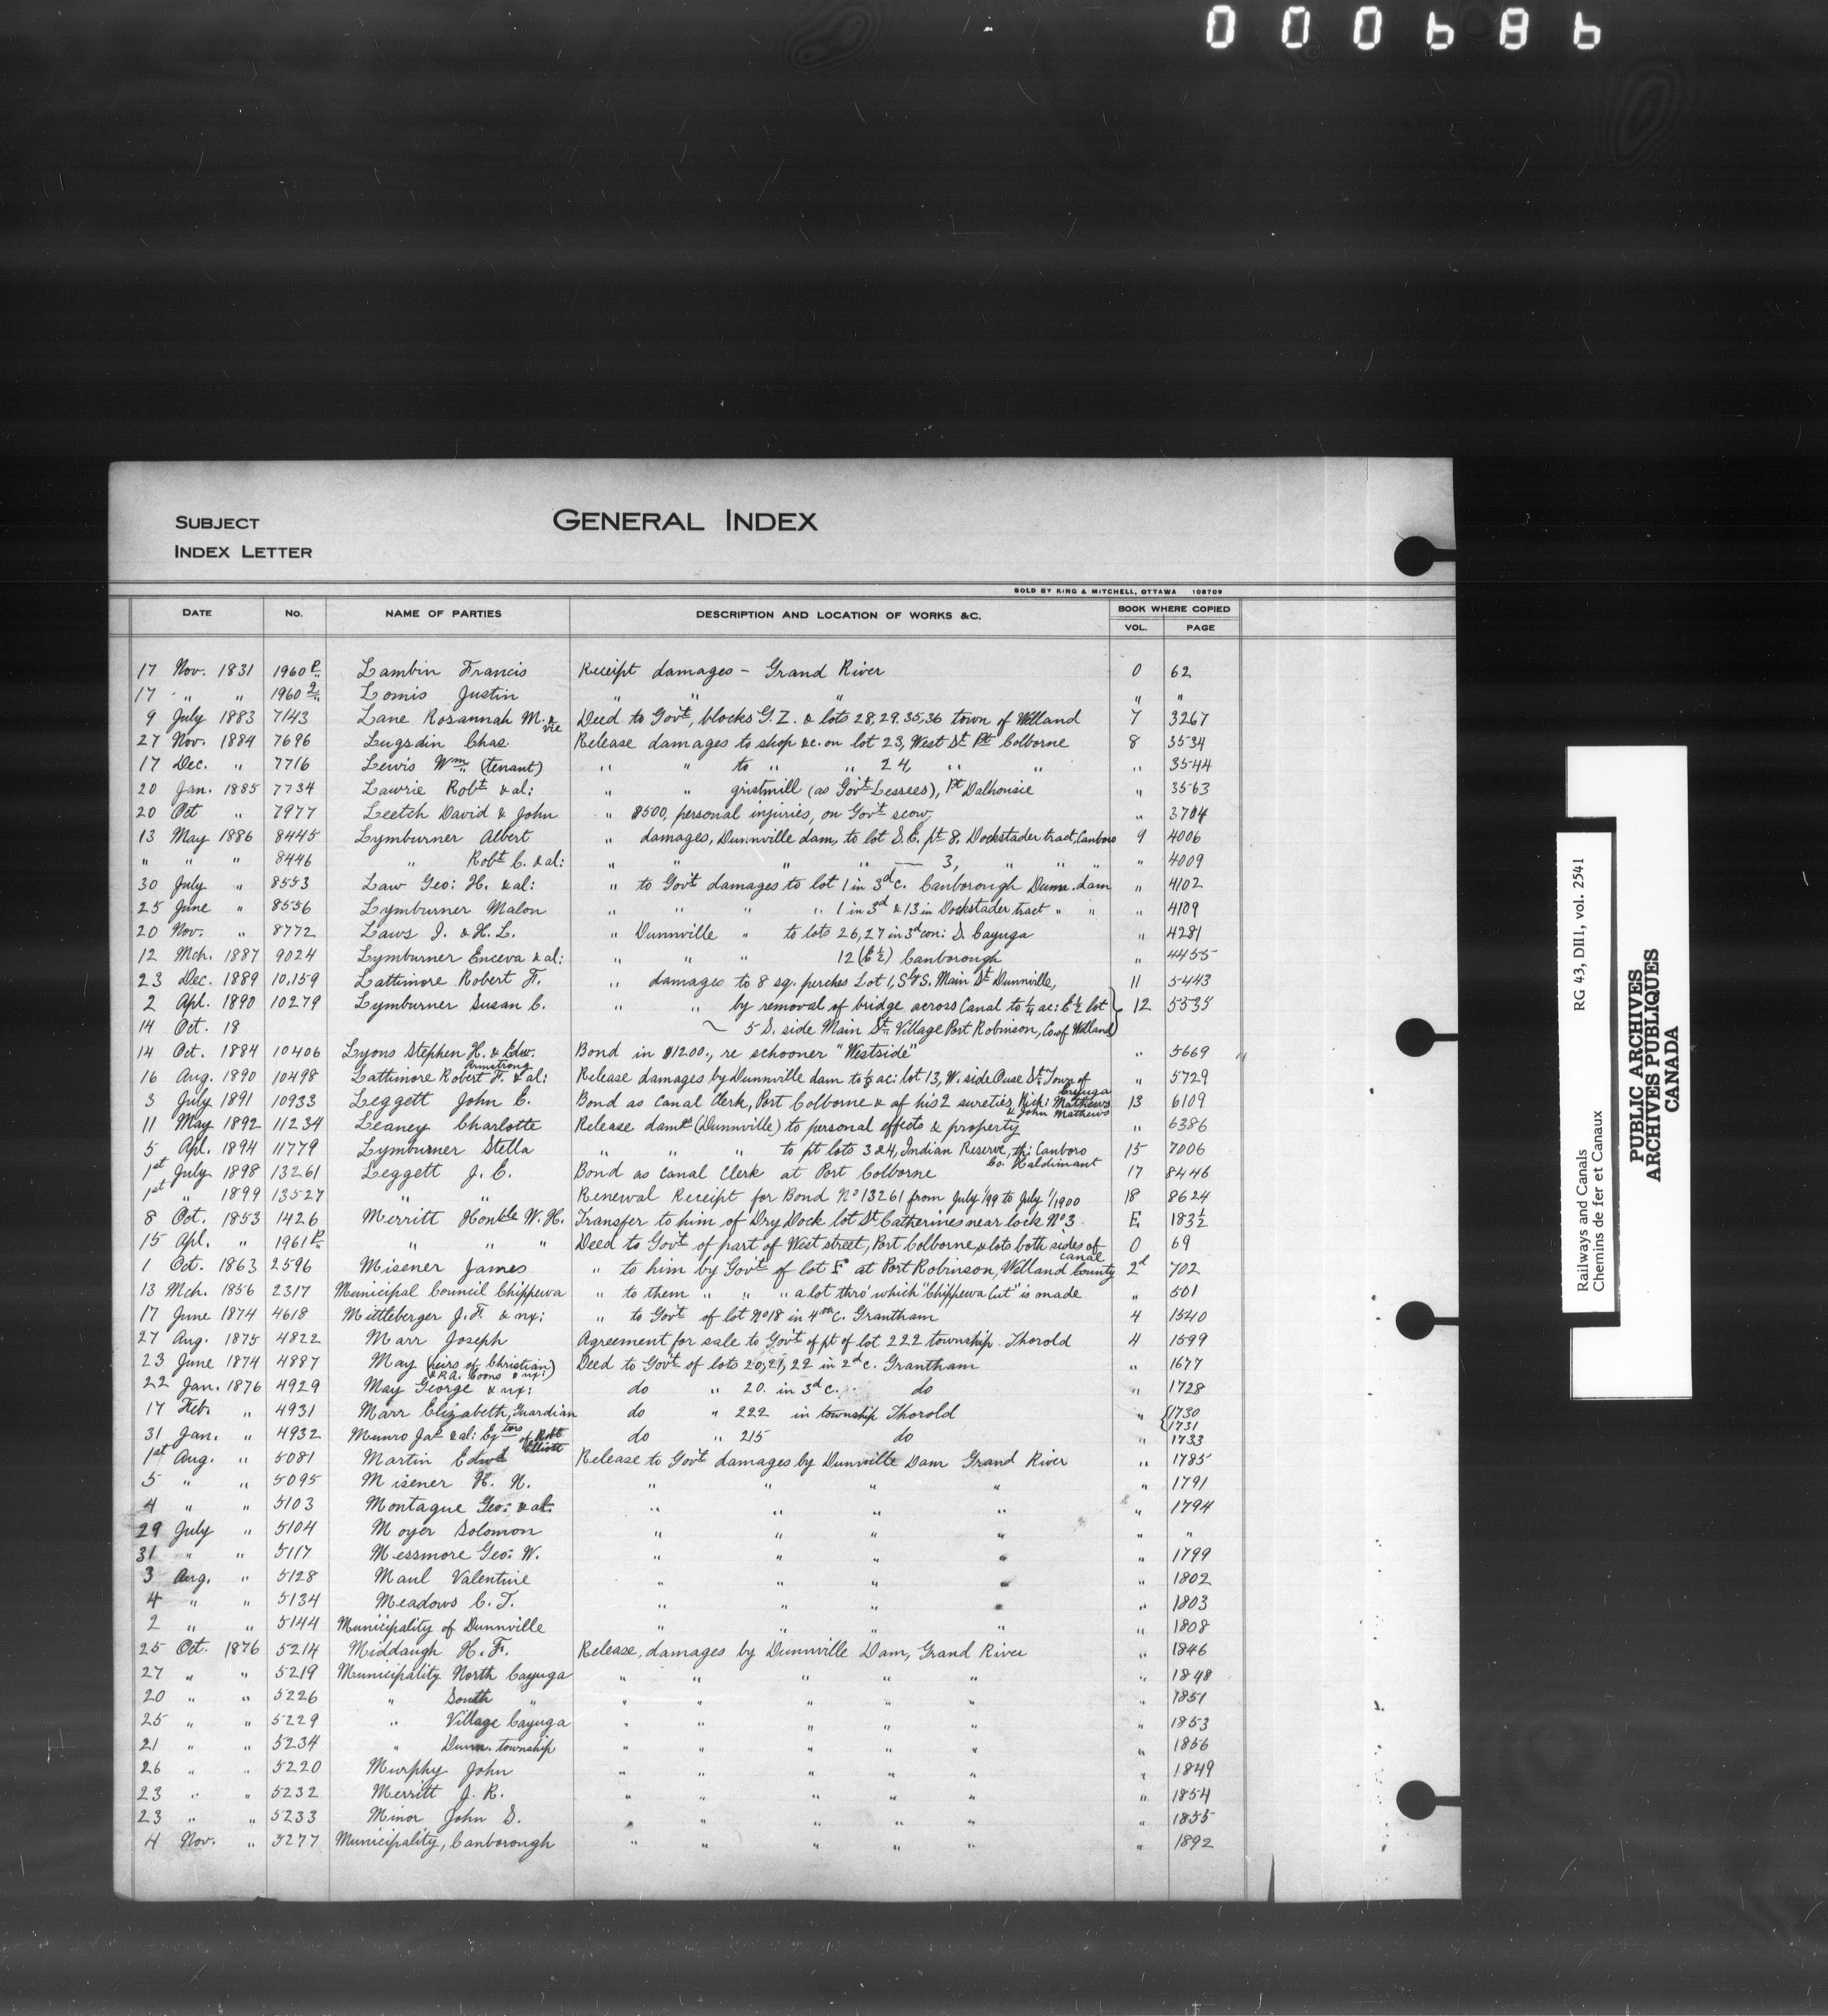 000686
SUBJECT
GENERAL INDEX
INDEX LETTER
SOLD BY KING & MITCHELL, OTTAWA 108709
DATE No. NAME OF PARTIES DESCRIPTION AND LOCATION OF WORKS &C. BOOK WHERE COPIED
VOL. PAGE
17 Nov. 1831 1960 P. Lambin Francis Receipt damages - Grand River 0 62
17 " " 1960 Q. Lomis Justin " " " " "
9 July 1883 7143 Lane Rosannah M. & vie Deed to Govt, blocks G.Z. & lots 28,29.35,36 town of Welland 7 3267
27 Nov. 1884 7696 Lugsdin Chas. Release damages to shop &c. on lot 23, West St Pt Colborne 8 3534
17 Dec. " 7716 Lewis Wm. (tenant) " " to " " 24 " " " 3544
20 Jan. 1885 7734 Lawrie Robt & al: " " gristmill (as Govt Lessees), Pt Dalhousie " 3563
20 Oct " 7977 Leetch David & John " $500, personal injuries, on Govt scow, " 3704
13 May 1886 8445 Lymburner Albert " damages, Dunnville dam, to lot S.E. pt 8. Dockstader tract, Canboro 9 4006
" " " 8446 " Robt C. & al: " " " " — 3, " " " " 4009
30 July " 8553 Law Geo: H. & al: " to Govt damages to lot 1 in 3d c. Canborough Dunn. dam " 4102
25 June " 8556 Lymburner Malon " " " " 1 in 3d & 13 in Dockstader tract " " " 4109
20 Nov. " 8772 Laws J. & H. L. " Dunnville " to lots 26,27 in 3d con: S. Cayuga " 4281
12 Mch. 1887 9024 Lymburner Enceva & al: " " " 12 (E½) Canborough " 4455
23 Dec. 1889 10,159 Lattimore Robert F. " damages to 8 sq. perches Lot 1, S. Main St Dunnville, 11 5443
2 Apl. 1890 10279 Lymburner Susan C. " " by removal of bridge across Canal to ¼ ac: E½ lot } 12 5535
14 Oct. 18 5 S. side Main St. Village Port Robinson, Co of Welland
14 Oct. 1884 10406 Lyons Stephen H. & Edw. Armstrong Bond in $1200., re schooner "Westside" " 5669
16 Aug. 1890 10498 Lattimore Robert F. & al: Release damages by Dunnville dam to ac: lot 13, W. side Ouse St. Town of Cayuga " 5729
3 July 1891 10933 Leggett John C. Bond as Canal Clerk, Port Colborne & of his 2 sureties, Rich: Mathews & John Mathews 13 6109
11 May 1892 11234 Leaney Charlotte Release (Dunnville) to personal effects & property " 6386
5 Apl. 1894 11779 Lymburner Stella " " " to pt lots 3 & 4, Indian Reserve, Canboro Co. Haldimant 15 7006
1st July 1898 13261 Leggett J. C. Bond as Canal Clerk at Port Colborne 17 8446
1st " 1899 13527 " " Renewal Receipt for Bond No 13261 from July 1/99 to July 1/1900 18 8624
8 Oct. 1853 1426 Merritt Honble W. H. Transfer to him of Dry Dock lot St Catherines near lock No 3 E. 183½
15 Apl. " 1961 P. " " " Deed to Govt of part of West street, Port Colborne, & lots both sides of canal 0 69
1 Oct. 1863 2596 Misener James " to him by Govt of lot F at Port Robinson, Welland County 2d 702
13 Mch. 1856 2317 Municipal Council Chippewa " to them " " " a lot thro' which "Chippewa Cut" is made " 501
17 June 1874 4618 Mittleberger J. F. & ux: " to Govt of lot No 18 in 4th C. Grantham 4 1540
27 Aug. 1875 4822 Marr Joseph Agreement for sale to Govt of pt of lot 222 township. Thorold 4 1599
23 June 1874 4887 May (heirs of Christian) (& P.A. Coons & ux:) Deed to Govt of lots 20,21,22 in 2d c. Grantham " 1677
22 Jan. 1876 4929 May George & ux: do " 20. in 3d c. do " 1728
17 Feb. " 4931 Marr Elizabeth, Guardian do " 222 in township Thorold " {1730
{1731
31 Jan. " 4932 Munro Jas & al: of Robt Elliott do " 215 do " 1733
1st Aug. " 5081 Martin Edwd Release to Govt damages by Dunnville Dam Grand River " 1785
5 " " 5095 Misener H. N. " " " " " 1791
4 " " 5103 Montague Geo: & al: " " " " " 1794
29 July " 5104 Moyer Solomon " " " " " "
31 " " 5117 Messmore Geo: W. " " " " " 1799
3 Aug. " 5128 Maul Valentine " " " " " 1802
4 " " 5134 Meadows C. T. " " " " " 1803
2 " " 5144 Municipality of Dunnville " " " " " 1808
25 Oct. 1876 5214 Middaugh H. F. Release, damages by Dunnville Dam, Grand River " 1846
27 " " 5219 Municipality North Cayuga " " " " " " 1848
20 " " 5226 " South " " " " " " " 1851
25 " " 5229 " Village Cayuga " " " " " " 1853
21 " " 5234 " Dunn. township " " " " " " 1856
26 " " 5220 Murphy John " " " " " " 1849
23 " " 5232 Merritt J. R. " " " " " " 1854
23 " " 5233 Minor John S. " " " " " " 1855
4 Nov. " 5277 Municipality, Canborough " " " " " " 1892
Railways and Canals RG 43, DII1, vol. 2541
Chemins de fer et Canaux
PUBLIC ARCHIVES
ARCHIVES PUBLIQUES
CANADA